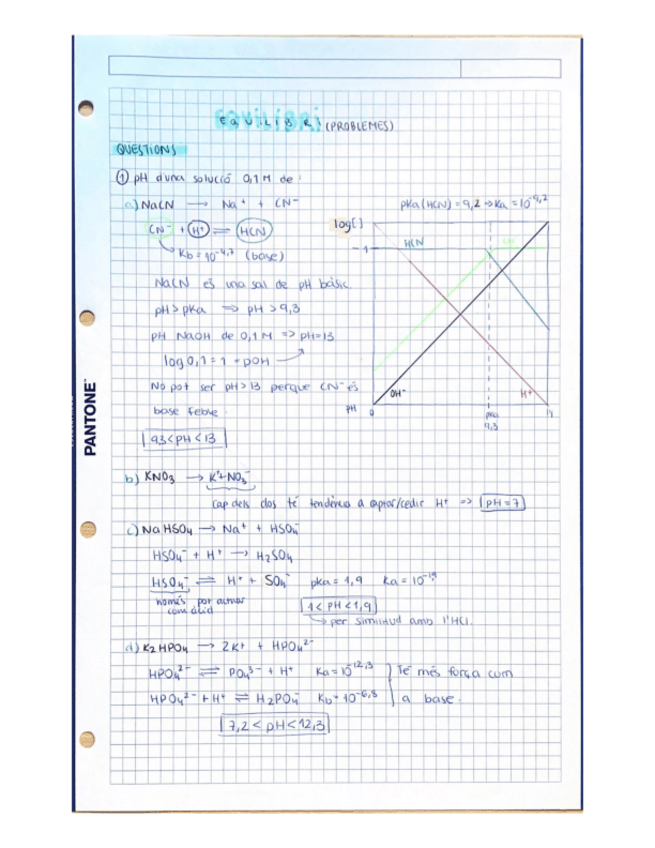 EQUILIBRI (PROBLEMES)
QUESTIONS
① pH d'una solució 0,1 M de:
a) NaCN → Na⁺ + CN⁻
pKa (HCN) = 9,2 → Ka = 10⁻⁹,²
CN⁻ + H⁺ ⇌ HCN
log[ ]
-1
HCN
Kb = 10⁻⁴,⁷ (base)
NaCN és una sal de pH bàsic.
pH > pKa ⇒ pH > 9,3
pH NaOH de 0,1 M ⇒ pH=13
log 0,1 = 1 = pOH
No pot ser pH > 13 perque CN⁻ és
base feble.
OH⁻
H⁺
PH
0
pka
9,3
14
9,3 < pH < 13
PANTONE
b) KNO₃ → K⁺+NO₃⁻
Cap dels dos té tendència a captar/cedir H⁺ ⇒ pH = 7
c) NaHSO₄ → Na⁺ + HSO₄⁻
HSO₄⁻ + H⁺ → H₂SO₄
HSO₄⁻ ⇌ H⁺ + SO₄⁻ pka = 1,9 Ka = 10⁻¹,⁹
només pot actuar
com àcid
1 < pH < 1,9
per similitud amb l'HCl.
d) K₂HPO₄ → 2K⁺ + HPO₄²⁻
HPO₄²⁻ ⇌ PO₄³⁻ + H⁺ Ka = 10⁻¹²,³
Té més força com
HPO₄²⁻ + H⁺ ⇌ H₂PO₄⁻ Kb = 10⁻⁶,⁸
a base.
7,2 < pH < 12,3